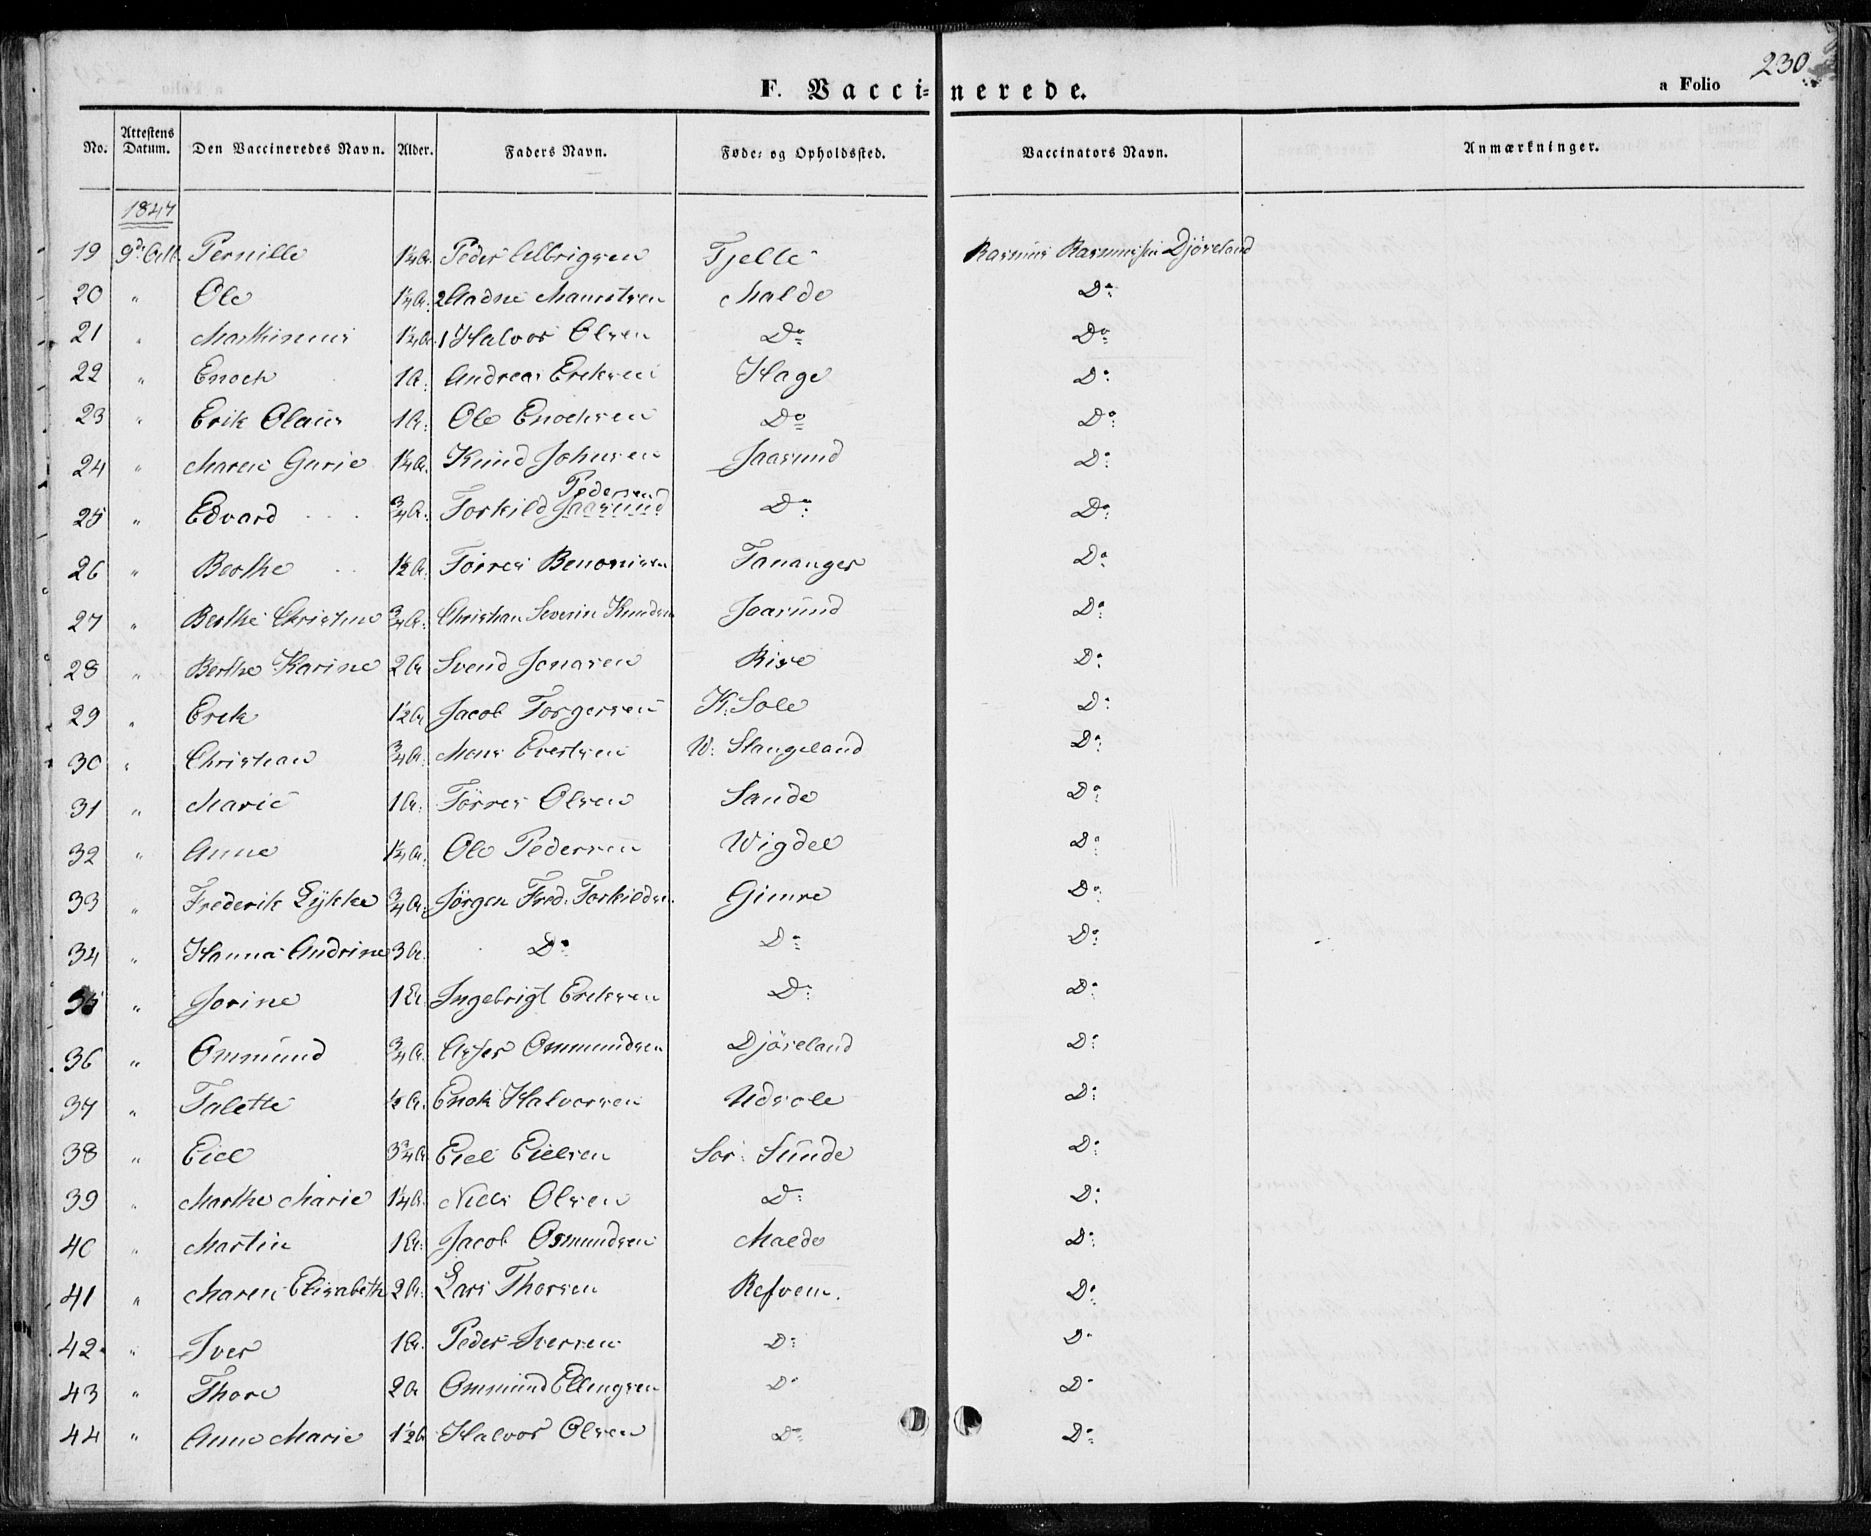 230
F. Vaccinerede. a Folio
No. Attestens Datum. Den Vaccineredes Navn. Alder. Faders Navn. Føde- og Opholdssted. Vaccinators Navn. Anmærkninger.
1847
19 9de Oct. Pernille 1¼ A. Peder Albrigsen Tjelle Rasmus Rasmussen Djøseland
20 " Ole 1¼ A. 2 Aadne Maurtsen Malde Do
21 " Mathinius 1¼ A. 1 Halvor Olsen Do Do
22 " Enoch 1 A. Andreas Eriksen Hage Do
23 " Erik Olaus 1 A. Ole Enochsen Do Do
24 " Maren Gurie 1¼ A. Knud Johnsen Jaasund Do
25 " Edvard ¾ A. Torkild Pedersen Jaasund Do Do
26 " Berthe 1½ A. Torres Benonisen Tananger Do
27 " Berthe Christine ¾ A. Christian Severin Knudsen Jaasund Do
28 " Berthe Karine 2 A. Svend Jonasen Rise Do
29 " Erik 1½ A. Jacob Torgersen K. Sole Do
30 " Christian ¾ A. Mons Evertsen W. Stangeland Do
31 " Marie 1 A. Törres Olsen Sande Do
32 " Anne 1¼ A. Ole Pedersen Wigdel Do
33 " Frederik Lykke ¾ A. Jörgen Fred. Torkildsen Gimre Do
34 " Hanna Andrine 3 A. Do Do Do
35 " Jorine 1 A. Ingebrigt Eriksen Do Do
36 " Ommund ¾ A. Asser Ommundsen Djöseland Do
37 " Talette ½ A. Enok Halvorsen Udsole Do
38 " Eiel 3¾ A. Eiel Eielsen Sør Sunde Do
39 " Marthe Marie 1¼ A. Niels Olsen Do Do
40 " Martin 1 A. Jacob Osmundsen Malde Do
41 " Maren Elisabeth 2 A. Lars Thorsen Refvem. Do
42 " Iver 1 A. Peder Iversen Do Do
43 " Thore 2 A. Ommund Ellingsen Do Do
44 " Anne Marie 1½ A. Halvor Olsen Do Do